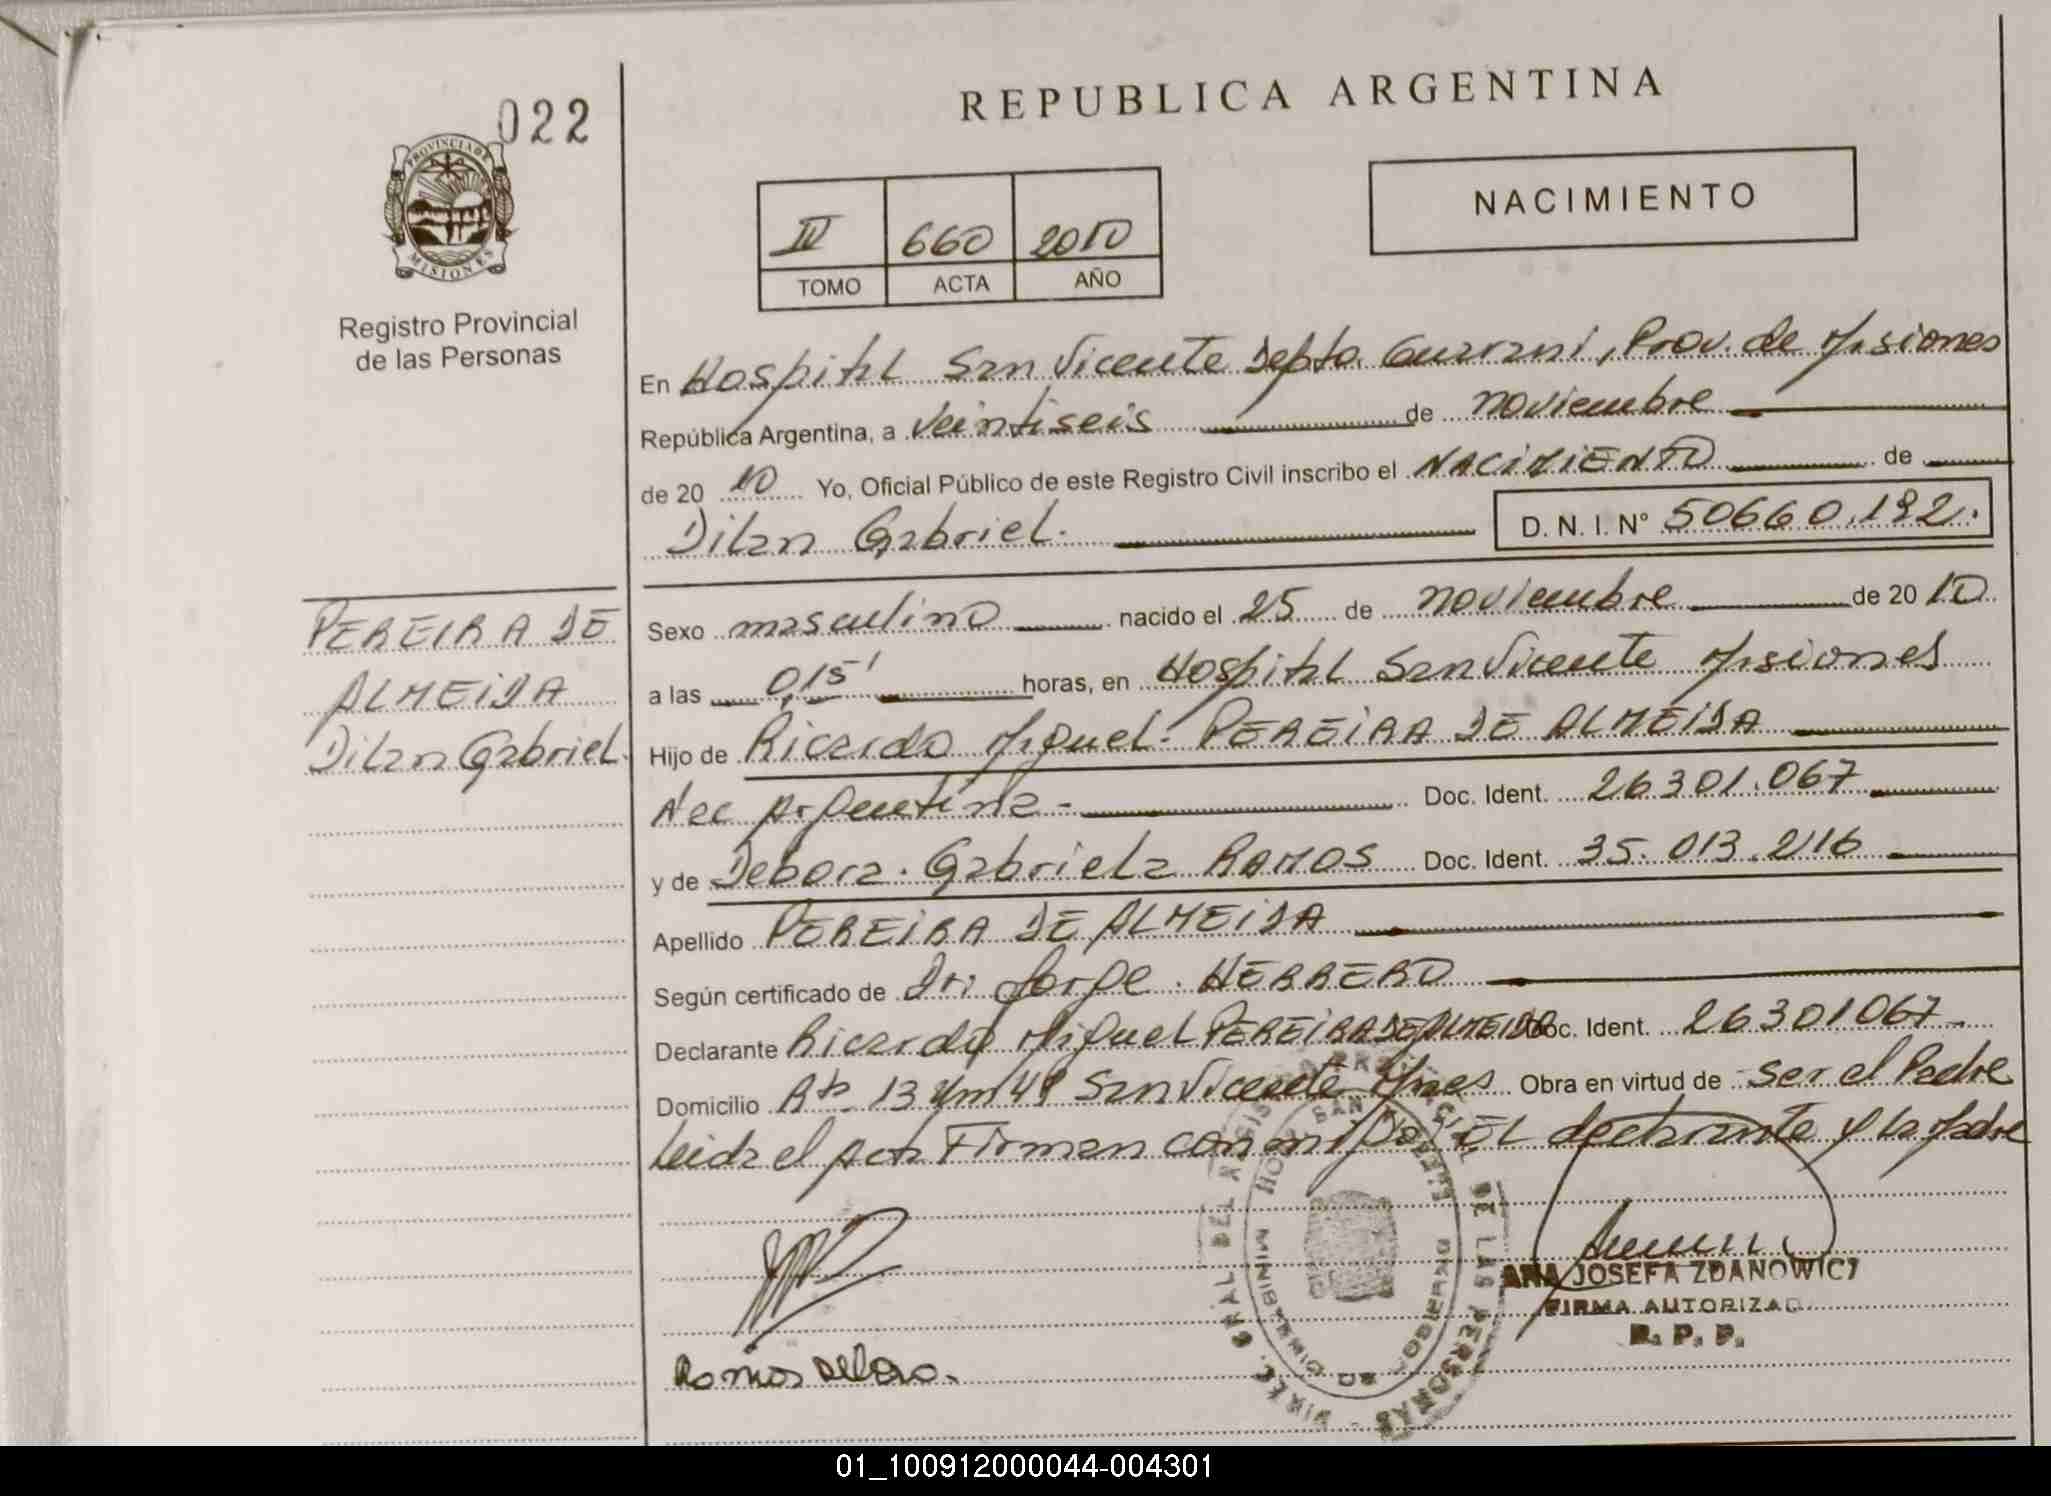 022
PROVINCIA DE
MISIONES
Registro Provincial
de las Personas
REPUBLICA ARGENTINA
NACIMIENTO
IV 660 2010
TOMO ACTA AÑO
En Hospital San Vicente Depto. Guarani, Prov. de Misiones
República Argentina, a veintiseis de noviembre
de 20 10 Yo, Oficial Público de este Registro Civil inscribo el NACIMIENTO de
Dilan Gabriel. D. N. I. N° 50660.192.
PEREIRA DE
ALMEIDA
Dilan Gabriel.
Sexo masculino nacido el 25 de noviembre de 2010
a las 0,15' horas, en Hospital San Vicente Misiones
Hijo de Ricardo Miguel PEREIRA DE ALMEIDA
Nac Argentina - Doc. Ident. 26301.067
y de Debora Gabriela RAMOS Doc. Ident. 35.013.216
Apellido PEREIRA DE ALMEIDA
Según certificado de Dr. Jorge HERRERO
Declarante Ricardo Miguel PEREIRA DE ALMEIDA Doc. Ident. 26301067
Domicilio Rta 13 Km 49 San Vicente Mnes Obra en virtud de ser el Padre
Leida el acta Firman conmigo EL declarante y la Madre
ANA JOSEFA ZDANOWICZ
FIRMA AUTORIZAD
R. P. P.
Ramos Debora.
01_100912000044-004301